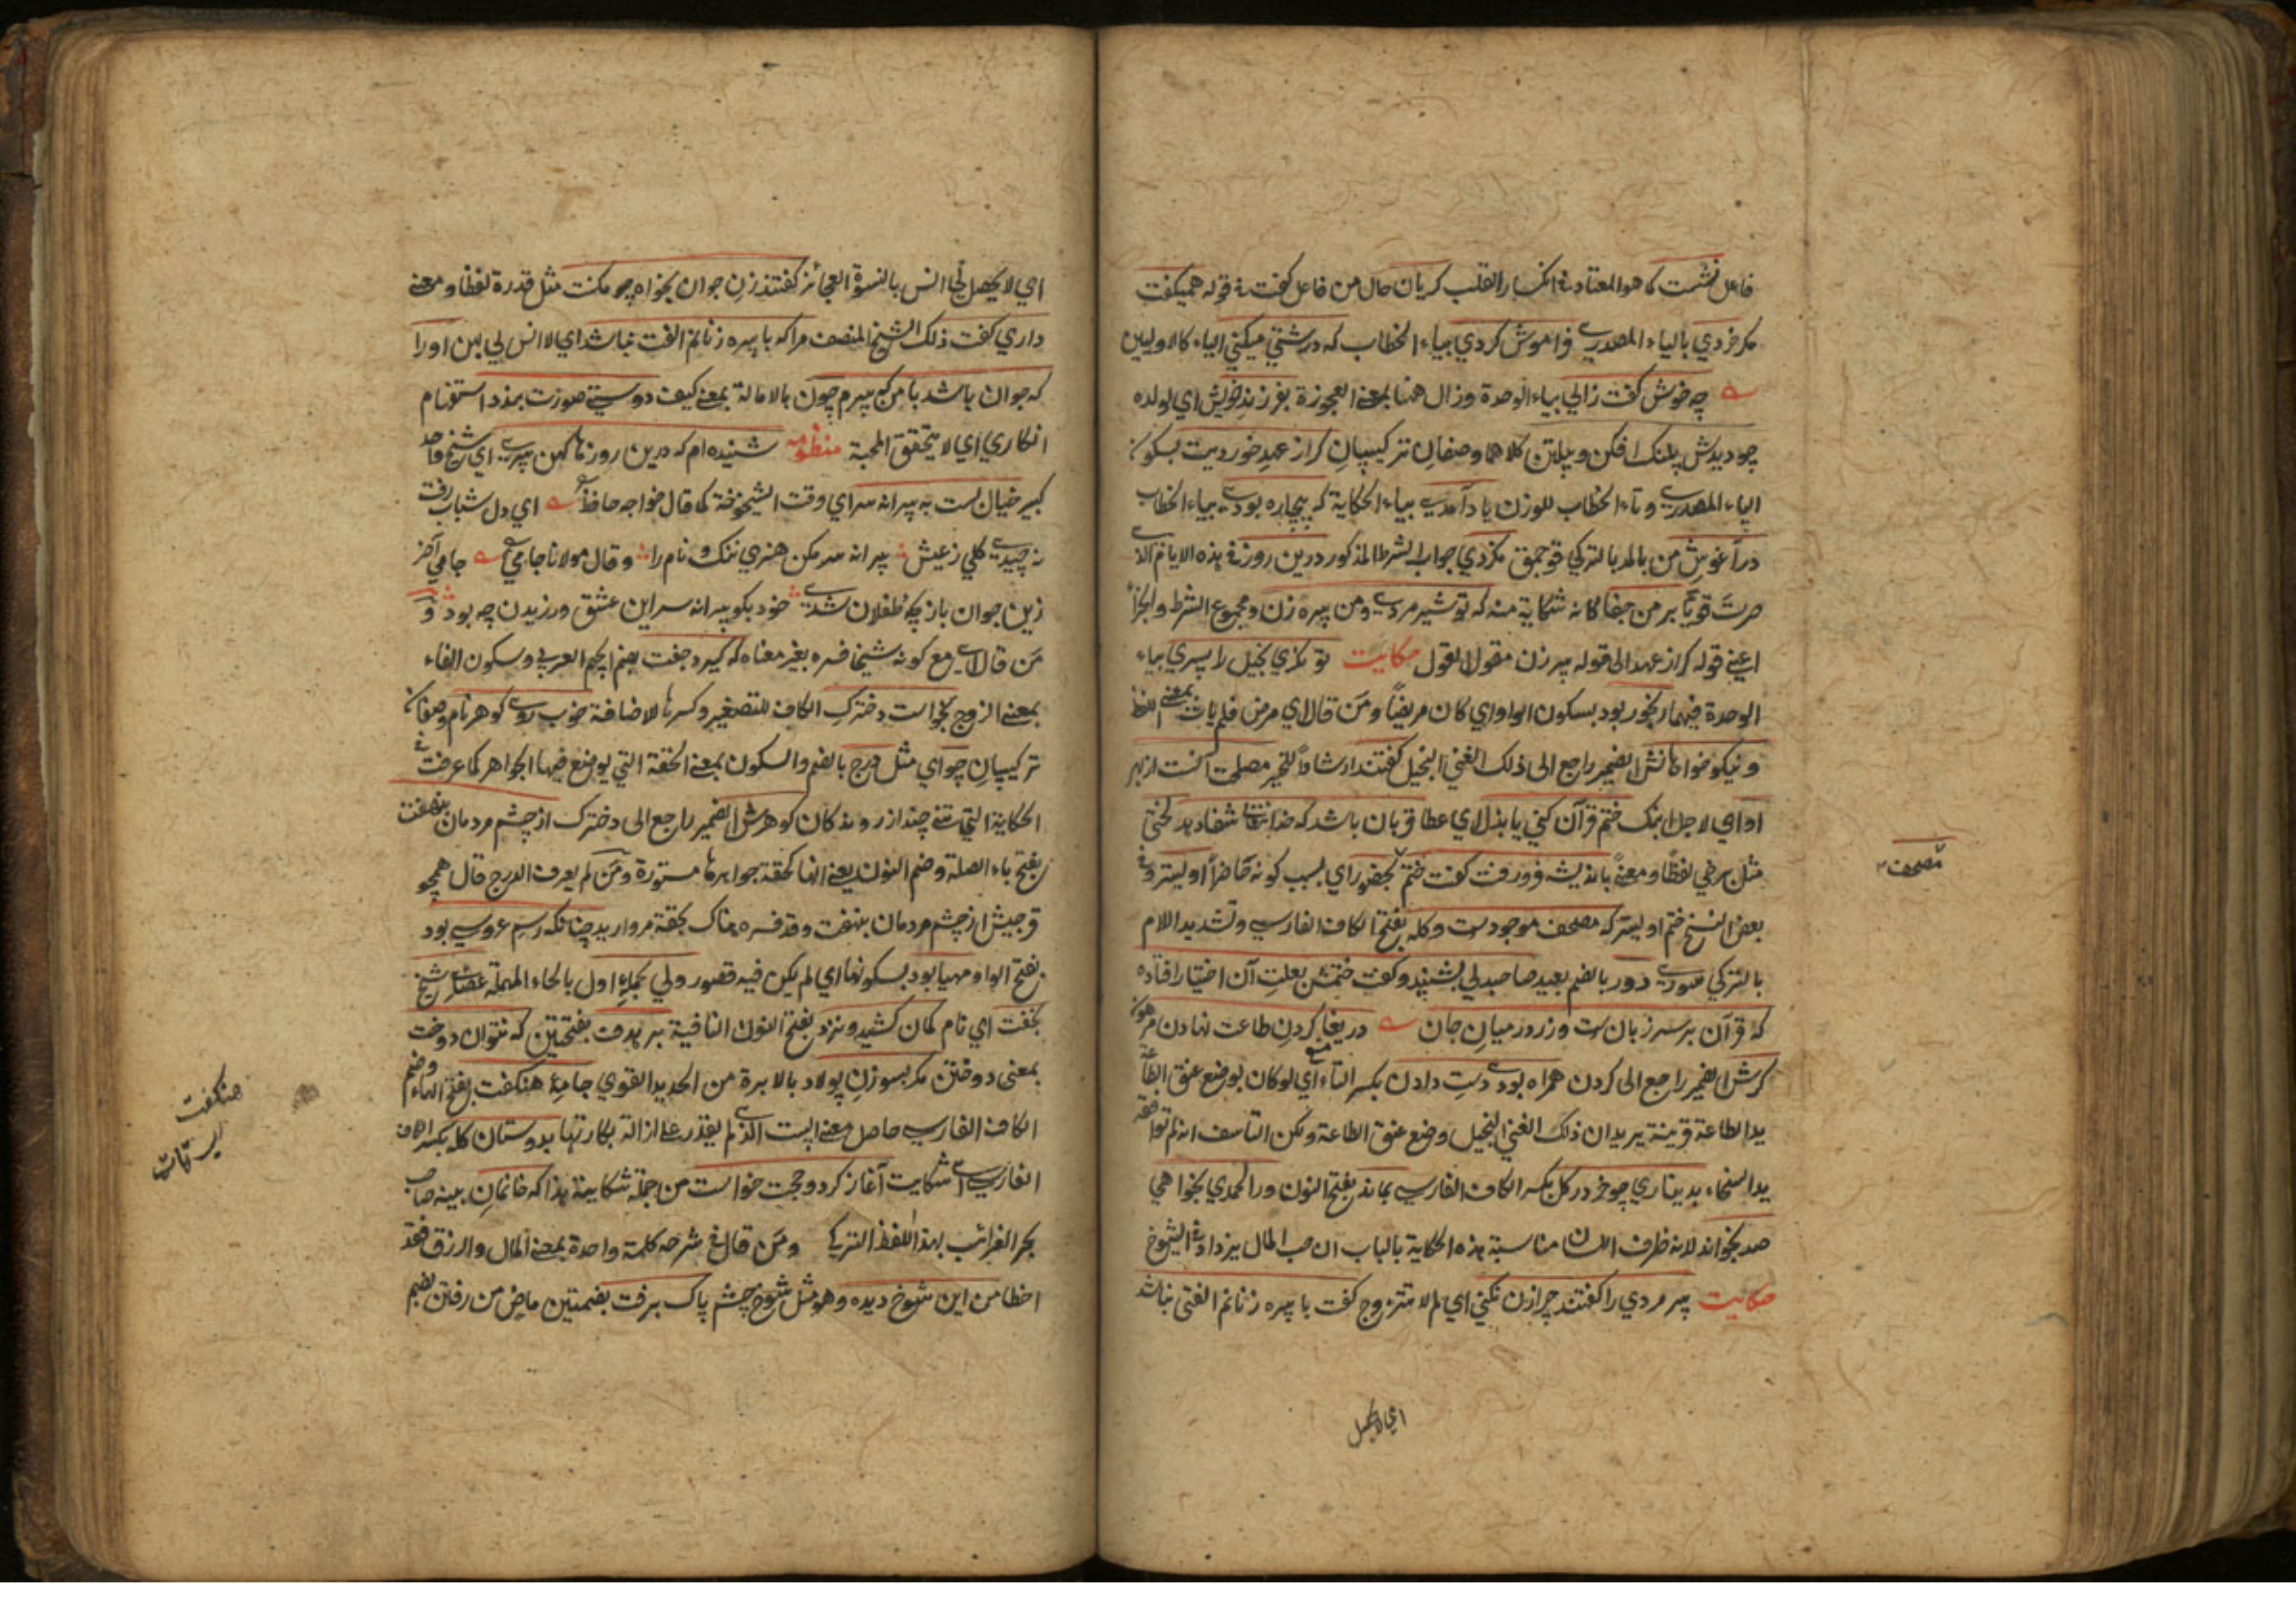 فاعل نشست كما هو المعتاد في انكسار القلب كريان حال من فاعل كفت في قوله هميكفت
مكر خردي بالياء المصدري فراموش كردي بياء الخطاب كه درشتي ميكني الياء كالاوليين
چه خوش كفت زالي بياء الوحدة وزال همنا بمعنى العجوزة بفرزند خويش اي لولده
چو ديدش پلنك افكن و پيلتن كلاهما وصفان تركيبيان كر از عهد خورديت بسكون
الياء المصدري وتاء الخطاب للوزن ياد آمدي بياء الحكاية كه بيچاره بودي بياء الخطاب
در آغوش من بالمد بالتركي قوجمق نكردي جواب الشرط المذكور درين روز في هذه الايام الا
صرت قويا بر من جفا كانه شكاية منه كه تو شير مردي ومن پيره زن ومجموع الشرط والجزاء
اعني قوله كر از عهد الى قوله پير زن مقول لقول حكايت توانكري بخيل را پسري بياء
الوحدة فيهما رنجور بود بسكون الواو اي كان مريضا ومن قال اي مرض فلم يات بمعنى اللفظ
ونيكو خواهانش الضمير راجع الى ذلك الغني البخيل كفتند ارشادا للخير مصلحت آنست از بهر
او اي لاجل ابنك ختم قرآن كني يا بذل اي عطا قربان باشد كه خداي تعالى شفا دهد لختي
مثل برخي لفظا ومعنى بانديشه فرو رفت كفت ختم بحضور اي بسبب كونه حاضرا اوليتر وفي
بعض النسخ ختم اوليتر كه مصحف موجودست وكله بفتح الكاف الفارسي وتشديد اللام
بالتركي سوري دور بالضم بعيد صاحبدلي بشنيد وكفت ختمش بعلت آن اختيار افتاده
كه قرآن بر سر زبان ست وزر در ميان جان دريغا كردن طاعت نهادن مرهون
كرش الضمير راجع الى كردن همراه بودي دست دادن بكسر التاء اي لو كان بوضع عنق الطاعة
يد الطاعة قرينة يريد ان ذلك الغني البخيل وضع عنق الطاعة ولكن التاسف انه لم توافقه
يد السخاء بديناري چو خر در كل بكسر الكاف الفارسي بماند بفتح النون ور الحمدي بخواهي
صد بخواند لانه ظرف اللسان مناسبة هذه الحكاية بالباب ان حب المال يزداد في الشيوخ
حكايت پير مردي را كفتند چرا زن نكني اي لم لا تتزوج كفت با پيره زنانم الفتي نباشد
مصحف
اي لا يحصل
اي لا يحصل لي انس بالنسوة العجائز كفتند زن جوان بخواه چو مكنت مثل قدرة لفظا ومعنى
داري كفت ذلك الشيخ المنصف مرا كه با پيره زنانم الفت نباشد اي لا انس لي بهن او را
كه جوان باشد با من كه پيرم چون بالامالة بمعنى كيف دوستي صورت بندد استفهام
انكاري اي لا يتحقق المحبة منظومه شنيده ام كه درين روزها كهن پيري اي شيخ واحد
كبير خيال بست به پيرانه سر اي وقت الشيخوخة كما قال خواجه حافظ اي دل شباب رفت
نه چيدي كلي ز عيش پيرانه سر مكن هنري ننك و نام را وقال مولانا جامي جامي آخر
زين جوان بازيچه طفلان شدي خود بكو پيرانه سر اين عشق ورزيدن چه بود و
من قال اي مع كونه شيخا فسره بغير معناه كه كيرد جفت بضم الجيم العربي وسكون الفاء
بمعنى الزوج بخواست دخترك الكاف للتصغير وكسرها للاضافة خوب روي كوهر نام وصفان
تركيبيان چو اي مثل درج بالضم والسكون بمعنى الحقة التي يوضع فيها الجواهر كما عرفت في
الحكاية التي تنتي چند از روندكان كوهرش الضمير راجع الى دخترك از چشم مردمان بنهفت
بفتح باء الصلة وضم النون يعني انها كحقة جواهرها مستورة ومن لم يعرف الدرج قال همچو
قوجيش از چشم مردمان بنهفت وقد فسره هناك بحقة مرواريد چنانكه رسم عروسي بود
بفتح الواو مهيا بود بسكونها اي لم يكن فيه قصور ولي بحمله اول بالحاء المهملة عصاي شيخ
بخفت اي نام كمان كشيد ونزد بفتح النون النافية بر هدف بفتحتين كه نتوان دوخت
بمعنى دوختن مكر بسوزن پولاد بالابرة من الحديد القوي جامهٔ هنكفت بفتح الهاء وضم
الكاف الفارسي حاصل معنى البيت الذي لم يقدر على ازالة بكارتها بدوستان كله بكسر الكاف
الفارسي شكايت آغاز كرد وحجت خواست من جملة شكايته هذا كه خانمان ببينه صاحب
بحر الغرائب بهذا اللفظ التركي ومن قال في شرحه كلمة واحدة بمعنى المال والرزق فقد
اخطا من اين شوخ ديده وهو مثل شوخ چشم پاك برفت بضمتين ماض من رفتن بضم
هنكفت